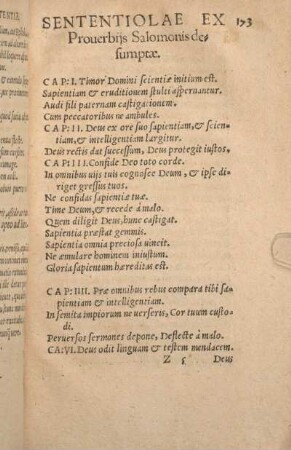 SENTENTIOLAE EX 173
Prouerbijs Salomonis de⸗
sumptæ.
CAP: I. Timor Domini scientiæ initium est.
Sapientiam & eruditionem stulti aspernantur.
Audi fili paternam castigationem.
Cum peccatoribus ne ambules.
CAP: II. Deus ex ore suo sapientiam, & scien⸗
tiam, & intelligentiam largitur.
Deus rectis dat successum, Deus protegit iustos.
CAP: III. Confide Deo toto corde.
In omnibus uijs tuis cognosce Deum, & ipse di
riget gressus tuos.
Ne confidas sapientiæ tuæ.
Time Deum, & recede à malo.
Quem diligit Deus, hunc castigat.
Sapientia præstat gemmis.
Sapientia omnia preciosa uincit.
Ne æmulare hominem iniustum.
Gloria sapientum hæreditas est.
CAP: IIII. Præ omnibus rebus compara tibi sa⸗
pientiam & intelligentiam.
In semita impiorum ne uerseris, Cor tuum custo⸗
di.
Peruersos sermones depone, Deflecte à malo.
CA: VI. Deus odit linguam & testem mendacem.
Z 5 Deus